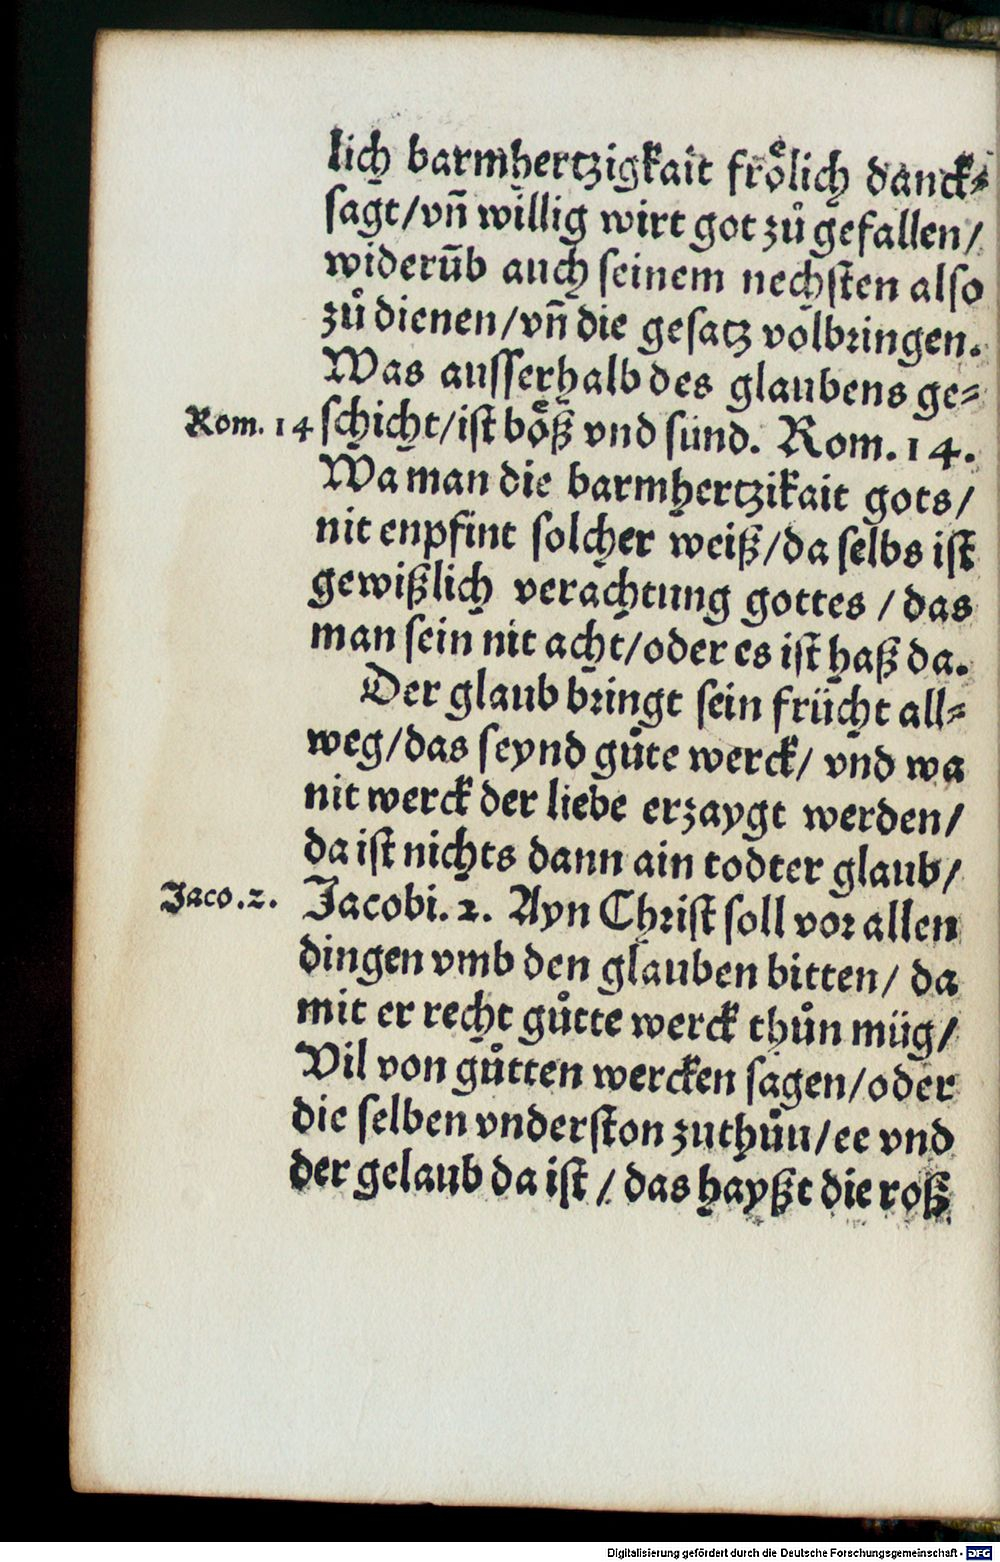 lich barmhertzigkait froͤlich danck⸗
sagt/vñ willig wirt got zů gefallen/
widerūb auch seinem nechsten also
zů dienen/vñ die gesatz volbringen.
Was ausserhalb des glaubens ge⸗
Rom. 14 schicht/ist boͤß vnd sund. Rom. 14.
Wa man die barmhertzikait gots/
nit enpfint solcher weiß/da selbs ist
gewißlich verachtung gottes / das
man sein nit acht/oder es ist haß da.
Der glaub bringt sein frücht all⸗
weg/das seynd gůte werck/ vnd wa
nit werck der liebe erzaygt werden/
da ist nichts dann ain todter glaub/
Jaco. 2. Jacobi. 2. Ayn Christ soll vor allen
dingen vmb den glauben bitten/ da
mit er recht gůtte werck thůn müg/
Vil von gůtten wercken sagen/oder
die selben vnderston zuthůu/ee vnd
der gelaub da ist / das hayßt die roß
Digitalisierung gefördert durch die Deutsche Forschungsgemeinschaft - DFG